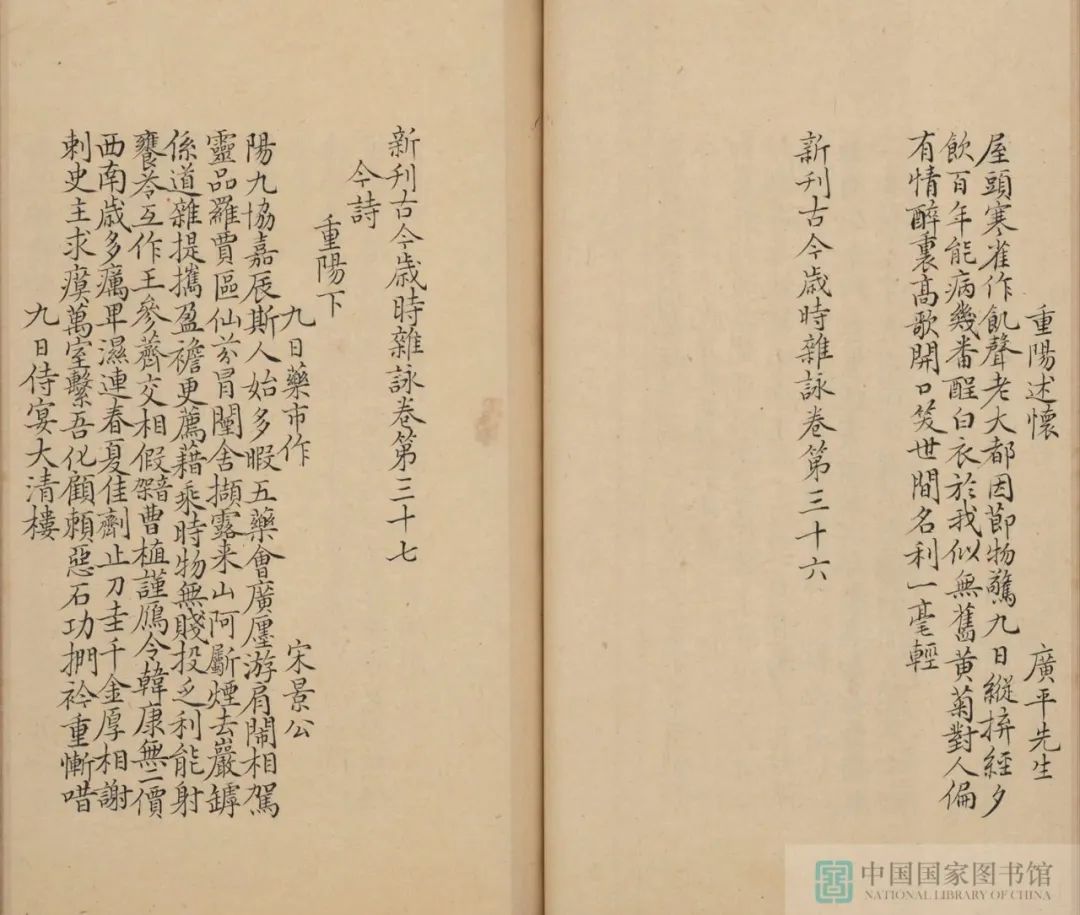 重陽述懷 廣平先生
屋頭寒雀作飢聲老大都因節物驚九日縱拚經夕
飲百年能病幾番酲白衣於我似無舊黄菊對人偏
有情醉裏髙歌開口笑世間名利一毫輕
新刊古今歲時雜詠卷第三十六
新刊古今歲時雜詠卷第三十七
今詩
重陽下
九日藥市作 宋景公
陽九協嘉辰斯人始多暇五藥會廣㕓游肩閙相駕
靈品羅賈區仙芬冒闉舍擷露来山阿斸煙去巖罅
係道雜提攜盈襜更薦藉乘時物無賤投乏利能射
饔苓互作王參薺交相假曹植謹贋令韓康無二價
西南歳多癘卑濕連春夏佳劑止刀圭千金厚相謝
刺史主求瘼萬室繫吾化顧頼惡石功捫衿重慚唶
九日侍宴大清樓
中国国家图书馆
NATIONAL LIBRARY OF CHINA